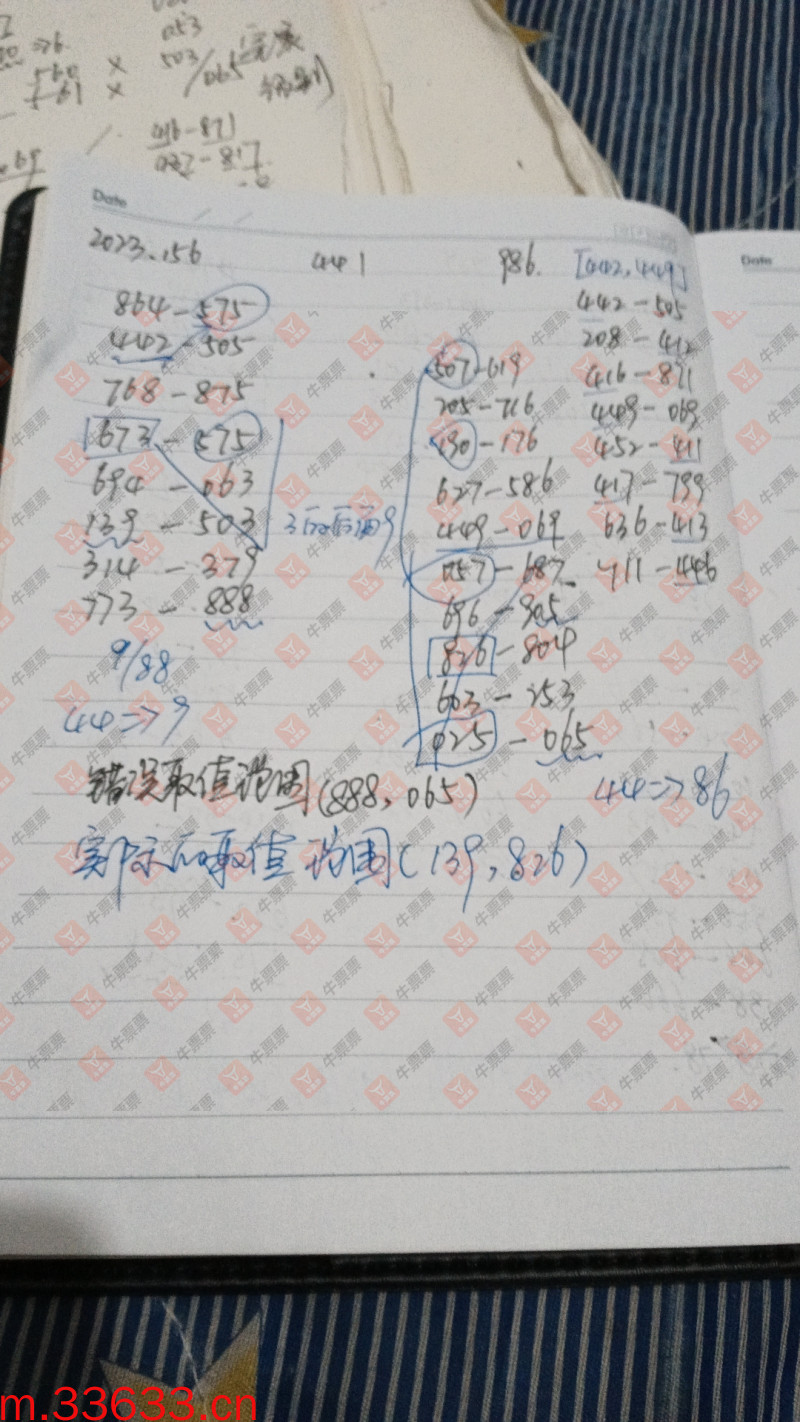 053
503/065
560 x
61 x
416-871
037-817
Date
Date
2023.156
441
986.
[442,449]
864-575
442-505
768-875
673-575
694-063
139-503
3后后面9
314-379
773-888
9/88
44=>9
507-619
205-716
190-176
627-586
449-069
057-687
696-805
826-804
603-253
025-065
442-505
208-412
416-871
449-069
452-411
417-799
636-413
711-446
44=>86
错误取值范围(888,065)
实际后取值范围(139,826)
牛票票
m.33633.cn